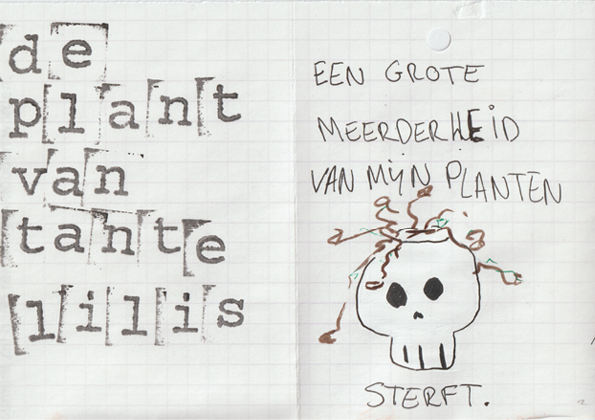 de
plant
van
tante
lilis
EEN GROTE
MEERDERHEID
VAN MIJN PLANTEN
STERFT.